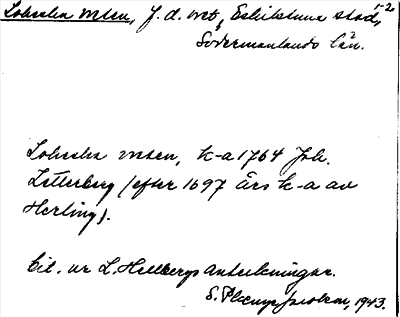 Loheska mten, f.d. vret, Eskilstuna stad, 1-2
Södermanlands län.
Loheska mten, k-a 1764 Joh.
Zetterberg (efter 1697 års k-a av
Herling).
Cit. ur L. Hellbergs anteckningar.
S. 1943.